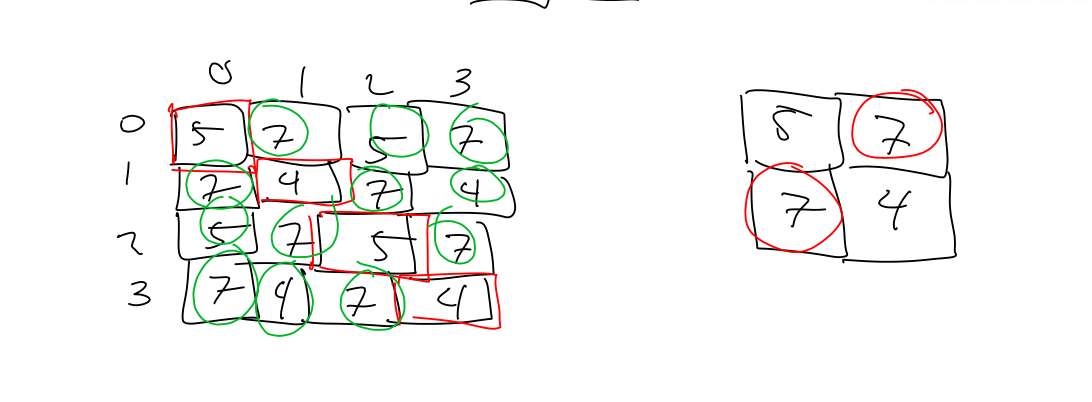 0 1 2 3
0 5 7 5 7
1 7 4 7 4
2 5 7 5 7
3 7 4 7 4
5 7
7 4